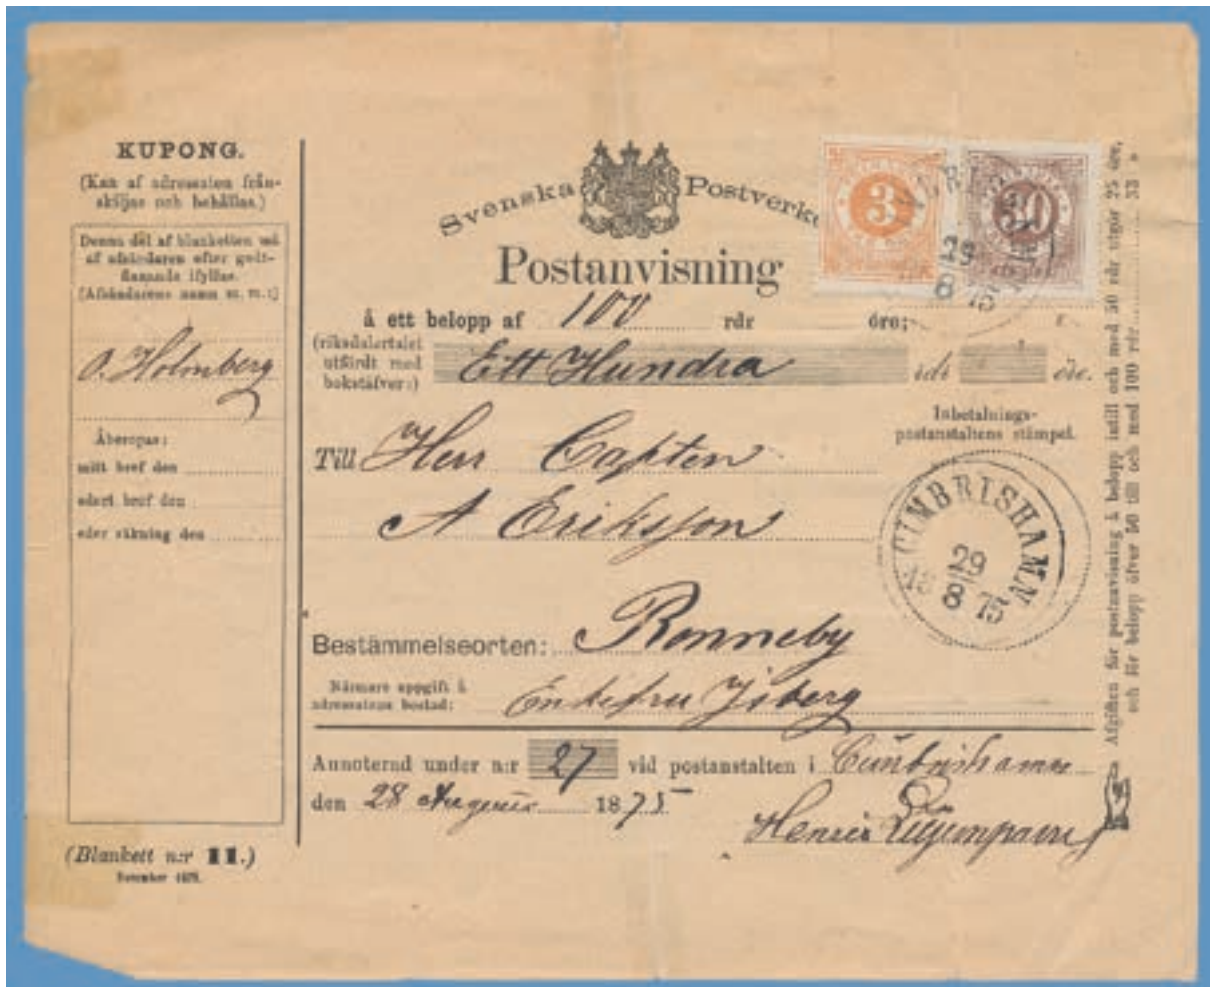 KUPONG.
(Kan af adressaten från-
skiljas och behållas.)
Denna del af blanketten må
af afsändaren efter godt-
finnande ifyllas.
(Afsändarens namn m. m.:)
O. Holmberg
Åberopas:
mitt bref den
edert bref den
eder räkning den
(Blankett n:r 11.)
Svenska Postverket
3
Postanvisning
å ett belopp af 100 rdr öre;
(riksdalertalet
utfördt med
bokstäfver:)
Ett Hundra rdr öre.
Till Herr Capten
A Eriksson
Inbetalnings-
postanstaltens stämpel.
CIMBRISHAMN
29
8
18 75
Bestämmelseorten: Ronneby
Närmare uppgift å
adressatens bostad: Enkefru Isberg
Annoterad under n:r 27 vid postanstalten i Cimbrishamn
den 28 Augusti 1875
Henric
29
8 75
Afgiften för postanvisning å belopp intill och med 50 rdr utgör 25 öre,
och för belopp öfver 50 till och med 100 rdr 33 »